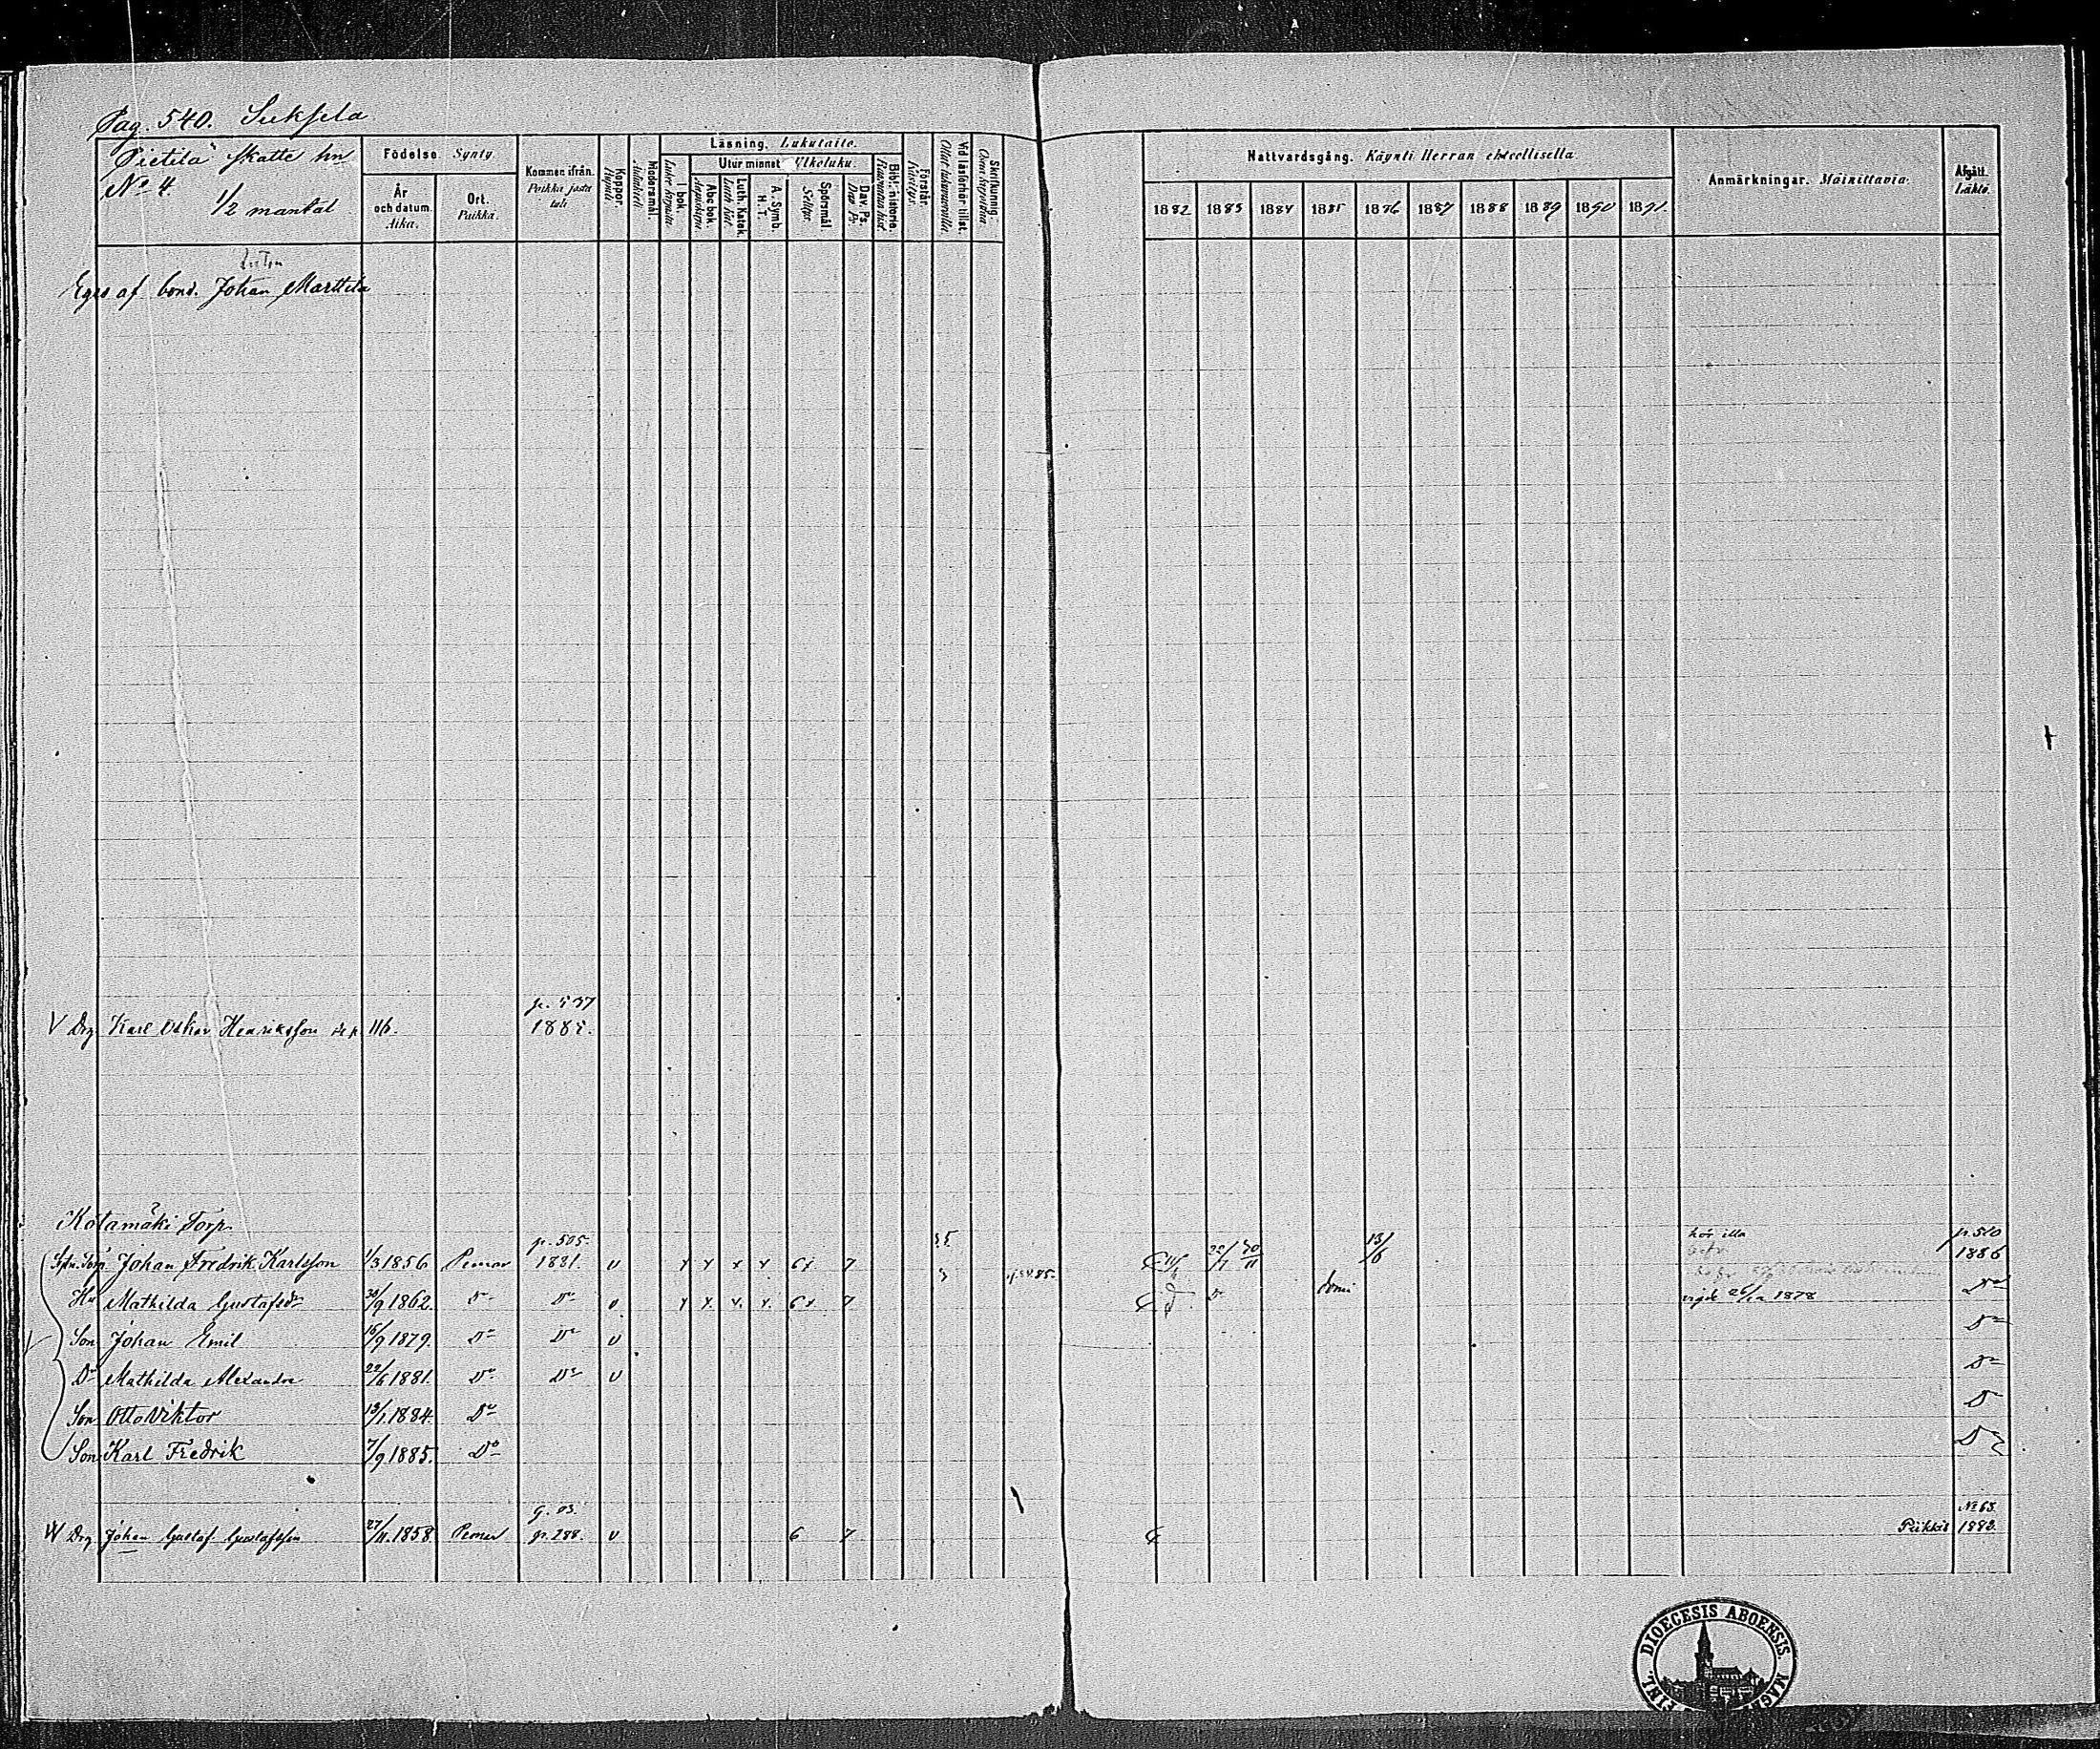 Pag. 540. Suksela
Pietilä skatte hn
No 4.
1/2 mantal
Födelse Synty
År och datum. Aika.
Ort. Paikka.
Kommen ifrån. Paikka josta tuli
Koppor. Rupuli.
Modersmål. Äidinkieli.
Läsning. Lukutaito.
I bok.
Utur minnet Ulkoluku.
Abc bok.
Luth. Katek.
A. Symb. H. T.
Spörsmål
Dav. Ps.
Bibl. historia.
Förstår. Käsitys.
Vid läsförhör tillst.
Skrifkunnig.
Nattvardsgång. Käynti Herran ehtoollisella.
1882 1883 1884 1885 1886 1887 1888 1889 1890 1891.
Anmärkningar. Muistuttavia
Afgått. Lähtö.
Eges af bond. Johan Marttila
p. 537
V Drg Karl Oskar Henriksson 116. 1885.
Kotamäki Torp.
p. 505. 55. 13/6 hör illa p. 510
Johan Fredrik Karlsson 1/3 1856 Pemar 1881. v x x x x 6x 7 1886
Hu Mathilda Gustafsdr 30/9 1862. Do Do v x x. v. x. 6x 7 Do vigde 26/12 1878 Do
Son Johan Emil 16/9 1879. Do Do v Do
Dr Mathilda Alexandra 22/6 1881. Do Do v Do
Son Otto Viktor 13/1 1884. Do Do
Son Karl Fredrik 7/9 1885. Do Do
No 63.
Drg Johan Gustaf Gustafsson 27/11 1858 Pemar p. 288. v 6 7 Piikkis 1883.
DIOECESIS ABOENSIS